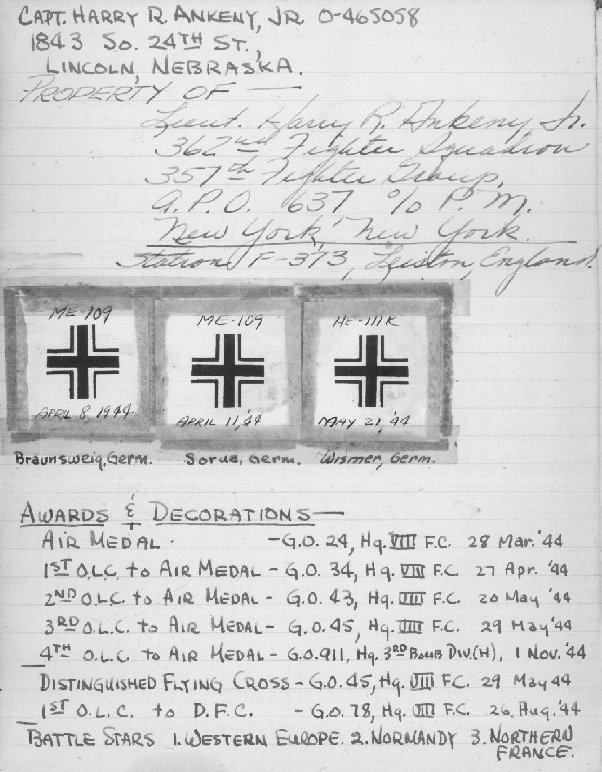 CAPT. HARRY R. ANKENY, JR. O-465058
1843 SO. 24TH ST.,
LINCOLN, NEBRASKA.
PROPERTY OF —
Lieut. Harry R. Ankeny Jr.
362nd Fighter Squadron
357th Fighter Group,
A.P.O. 637 % P.M.
New York, New York.
Station F-373, Leiston, England.
ME-109 ME-109 HE-111K
APRIL 8, 1944 APRIL 11,'44 MAY 21,'44
Braunsweig, Germ. Sorua, Germ. Wismer, Germ.
AWARDS & DECORATIONS—
AIR MEDAL - G.O. 24, Hq. VIII F.C. 28 Mar. '44
1ST O.L.C. to AIR MEDAL - G.O. 34, Hq. VIII F.C. 27 Apr. '44
2ND O.L.C. to AIR MEDAL - G.O. 43, Hq. VIII F.C. 20 May '44
3RD O.L.C. to AIR MEDAL - G.O. 45, Hq. VIII F.C. 29 May '44
4TH O.L.C. to AIR MEDAL - G.O. 911, Hq. 3RD BOMB DIV.(H), 1 Nov. '44
DISTINGUISHED FLYING CROSS - G.O. 45, Hq. VIII F.C. 29 May 44
1ST O.L.C. to D.F.C. - G.O. 78, Hq. VIII F.C. 26, Aug. '44
BATTLE STARS 1. WESTERN EUROPE. 2. NORMANDY 3. NORTHERN
FRANCE.